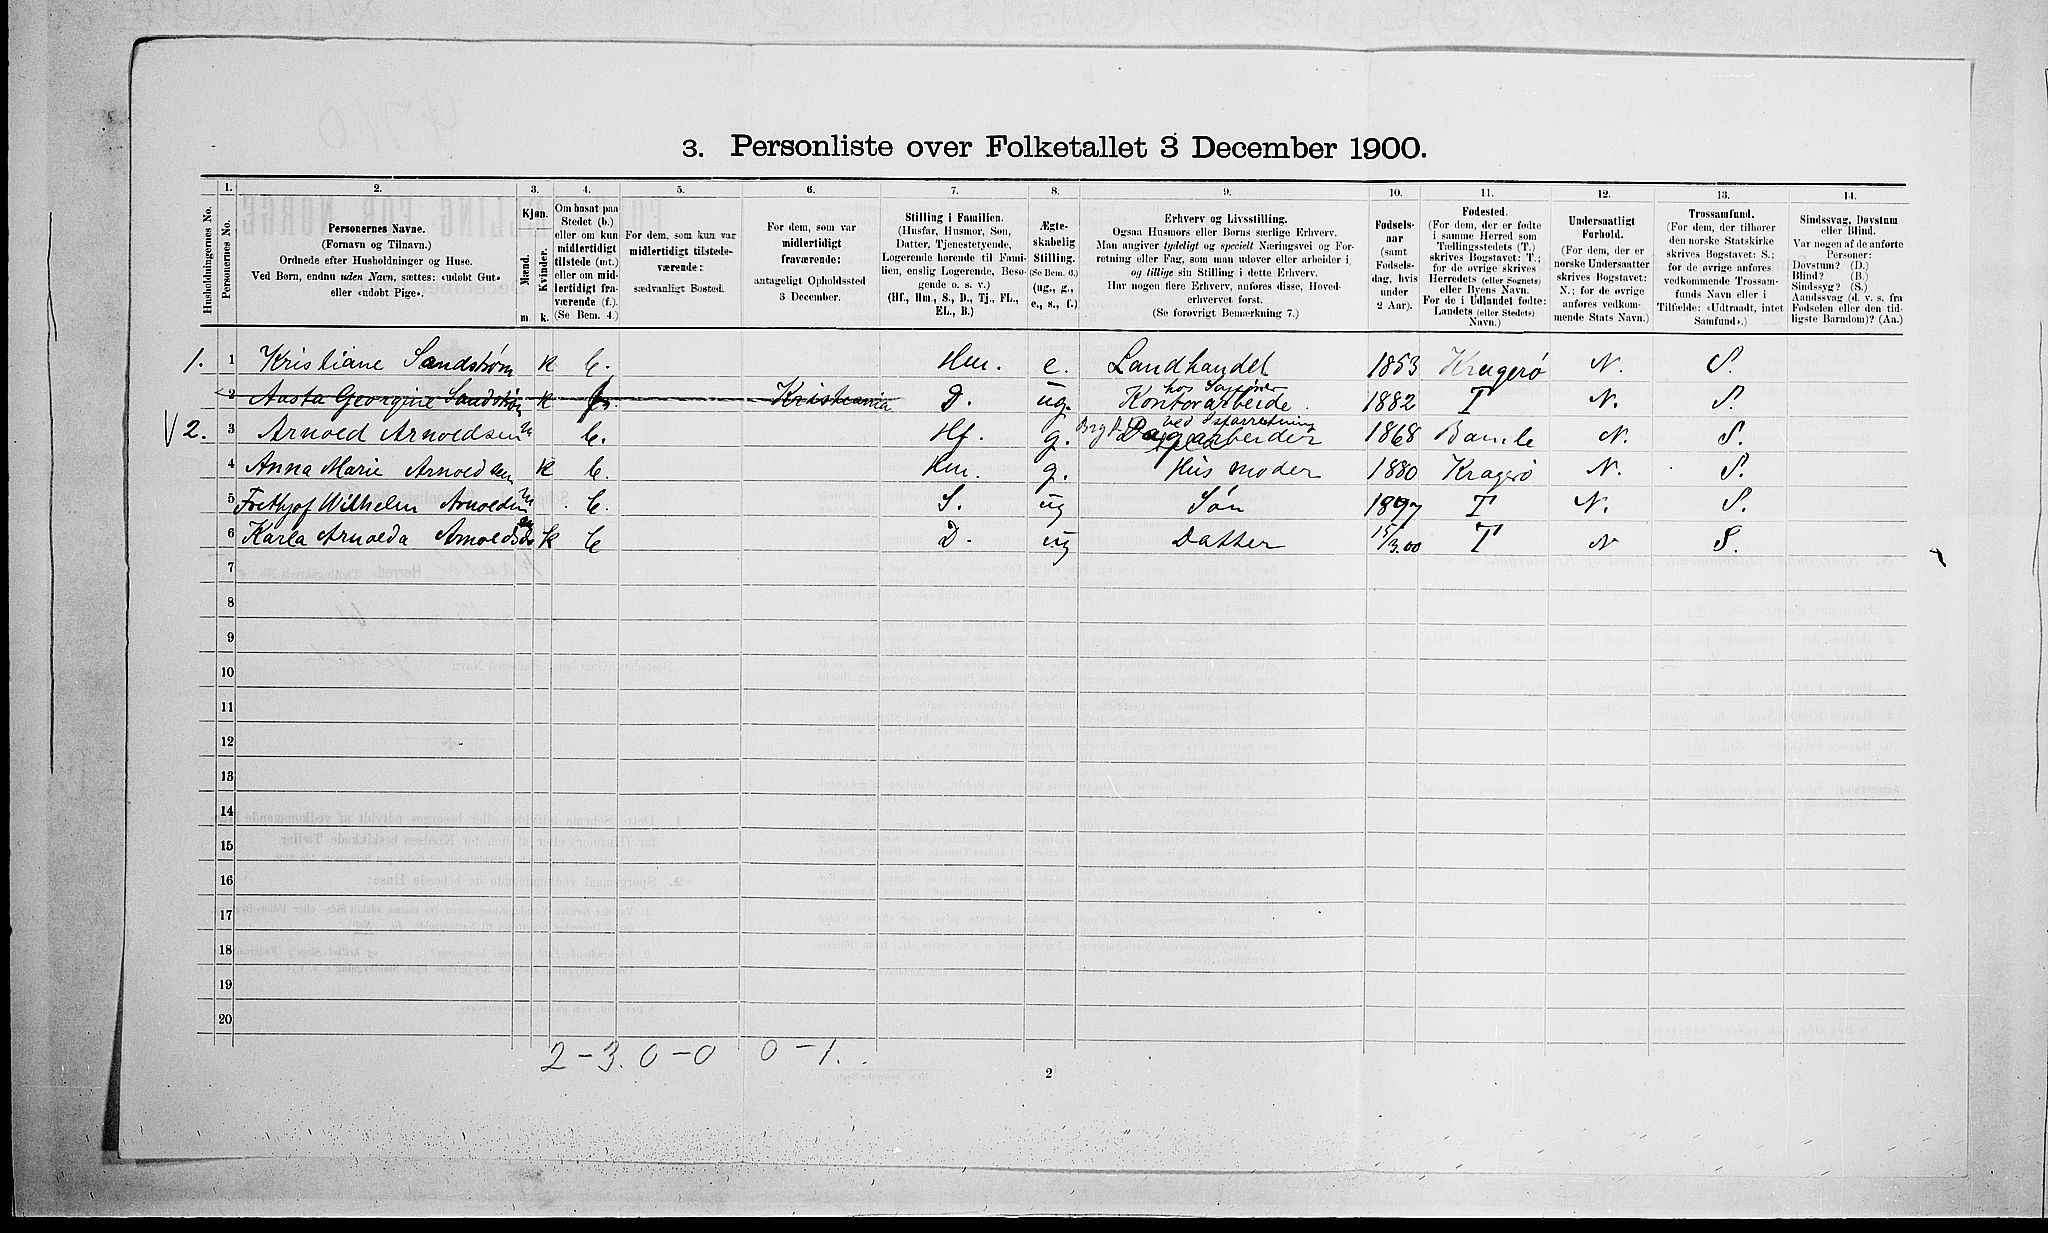 3. Personliste over Folketallet 3 December 1900.
1. 2. 3. 4. 5. 6. 7. 8. 9. 10. 11. 12. 13. 14.
Husholdningernes No.
Personernes No.
Personernes Navne.
(Fornavn og Tilnavn.)
Ordnede efter Husholdninger og Huse.
Ved Børn, endnu uden Navn, sættes: «udøbt Gut»
eller «udøbt Pige».
Kjøn.
Mænd.
Kvinder.
m. k.
Om bosat paa
Stedet (b.)
eller om kun
midlertidigt
tilstede (mt.)
eller om mid-
lertidigt fra-
værende (f.)
(Se Bem. 4.)
For dem, som kun var
midlertidigt tilstede-
værende:
sædvanligt Bosted.
For dem, som var
midlertidigt
fraværende:
antageligt Opholdssted
3 December.
Stilling i Familien.
(Husfar, Husmor, Søn,
Datter, Tjenestetyende,
Logerende hørende til Fami-
lien, enslig Logerende, Besø-
gende o. s. v.)
(Hf., Hm., S., D., Tj., FL.,
EL., B.)
Ægte-
skabelig
Stilling.
(Se Bem. 6.)
(ug., g.,
e., s., f.)
Erhverv og Livsstilling.
Ogsaa Husmors eller Børns særlige Erhverv.
Man angiver tydeligt og specielt Næringsvei og For-
retning eller Fag, som man udøver eller arbeider i,
og tillige sin Stilling i dette Erhverv.
Har nogen flere Erhverv, anføres disse, Hoved-
erhvervet først.
(Se forøvrigt Bemerkning 7.)
Fødsels-
aar
(samt
Fødsels-
dag, hvis
under
2 Aar).
Fødested.
(For dem, der er fødte
i samme Herred som
Tællingsstedets (T.)
skrives Bogstavet: T.;
for de øvrige skrives
Herredets (eller Sognets)
eller Byens Navn.
For de i Udlandet fødte:
Landets (eller Stedets)
Navn.)
Undersaatligt
Forhold.
(For dem, der er
norske Undersaatter
skrives Bogstavet:
N.; for de øvrige
anføres vedkom-
mende Stats Navn.)
Trossamfund.
(For dem, der tilhører
den norske Statskirke
skrives Bogstavet: S.;
for de øvrige anføres
vedkommende Trossam-
funds Navn eller i
Tilfælde: «Udtraadt, intet
Samfund».)
Sindssvag, Døvstum
eller Blind.
Var nogen af de anførte
Personer:
Døvstum? (D.)
Blind? (B.)
Sindssyg? (S.)
Aandssvag (d. v. s. fra
Fødselen eller den tid-
ligste Barndom)? (Aa.)
1. 1 Kristiane Sandstrøm k b. Hm. e. Landhandel 1853 Kragerø N. S.
hos Sagfører
2 Aasta Georgine Sandstrøm k f. Kristiania D. ug. Kontorarbeide. 1882 T N. S.
V 2. 3 Arnold Arnoldsen m b. Hf. g. Dagarbeider 1868 Bamle N. S.
4 Anna Marie Arnoldsen k b. Hm. g. Husmoder 1880 Kragerø N. S.
5 Frethjof Wilhelm Arnoldsen m b. S. ug Søn 1897 T N. S.
6 Karla Arnolda Arnoldsen k b D. ug Datter 15/3.00 T N S.
7
8
9
10
11
12
13
14
15
16
17
18
19
20
2-3. 0-0 0-1.
2